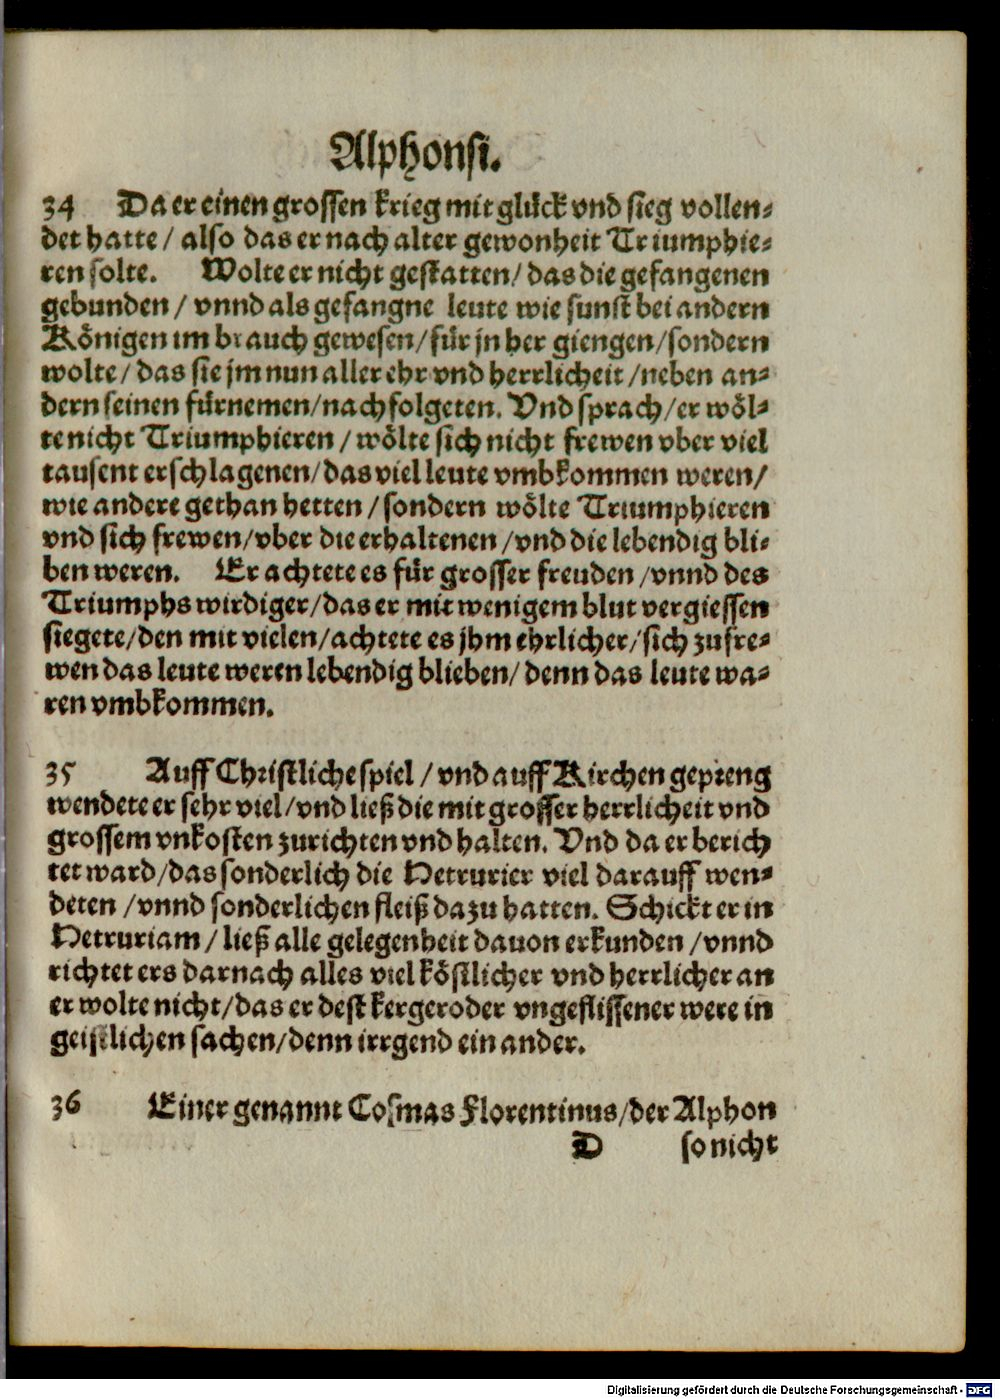 Alphonsi.
34 Da er einen grossen krieg mit glück vnd sieg vollen-
det hatte / also das er nach alter gewonheit Triumphie-
ren solte. Wolte er nicht gestatten/ das die gefangenen
gebunden / vnnd als gefangne leute wie sunst bei andern
Königen im brauch gewesen/für jn her giengen/sondern
wolte/ das sie jm nun aller ehr vnd herrlicheit /neben an-
dern seinen fürnemen/nachfolgeten. Vnd sprach/er wöl-
te nicht Triumphieren / wölte sich nicht frewen vber viel
tausent erschlagenen/das viel leute vmbkommen weren/
wie andere gethan hetten /sondern wölte Triumphieren
vnd sich frewen/vber die erhaltenen /vnd die lebendig bli-
ben weren. Er achtete es für grosser freuden /vnnd des
Triumphs wirdiger/das er mit wenigem blut vergiessen
siegete/den mit vielen/achtete es jhm ehrlicher/sich zufre-
wen das leute weren lebendig blieben/ denn das leute wa-
ren vmbkommen.
35 Auff Christliche spiel /vnd auff Kirchen gepreng
wendete er sehr viel/vnd ließ die mit grosser herrlicheit vnd
grossem vnkosten zurichten vnd halten. Vnd da er berich
tet ward/das sonderlich die Hetrurier viel darauff wen-
deten /vnnd sonderlichen fleiß dazu hatten. Schickt er in
Hetruriam / ließ alle gelegenheit dauon erkunden /vnnd
richtet ers darnach alles viel köstlicher vnd herrlicher an
er wolte nicht/das er dest kerger oder vngeflissener were in
geistlichen sachen/denn irrgend ein ander.
36 Einer genannt Cosmas Florentinus/der Alphon
D so nicht
Digitalisierung gefördert durch die Deutsche Forschungsgemeinschaft - DFG